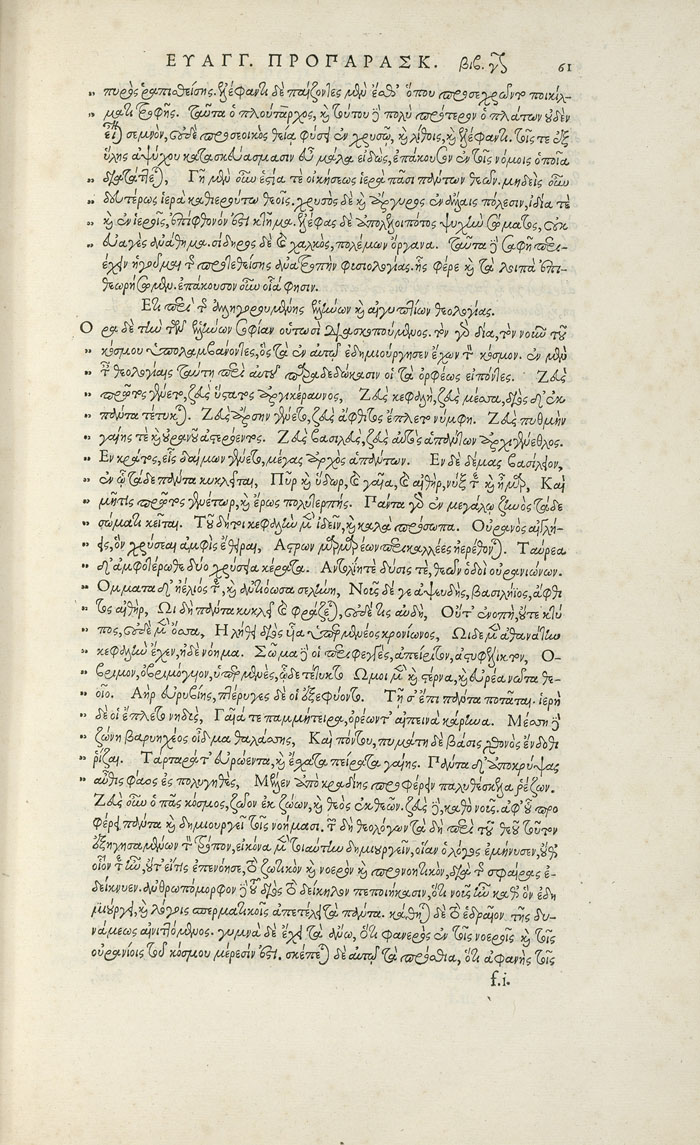 ΕΥΑΓΓ. ΠΡΟΠΑΡΑΣΚ. βιβ. γ 61
πυρὸς ῥαπισθείσης. ἐλέφαντι δὲ παίζοντες μὲν ἔσθ' ὅπου προσεχρῶντο ποικίλ-
ματι τρυφῆς. Ταῦτα ὁ πλούταρχος, καὶ τούτου ἢ πολὺ πρότερον ὁ πλάτων οὐδὲν
εἶναι σεμνὸν, οὐδὲ προσεοικὸς θείᾳ φύσει ἐν χρυσῷ, καὶ λίθοις, καὶ ἐλέφαντι. τοῖς τε ἐξ
ὕλης ἀψύχου κατασκευάσμασιν εὖ μάλα εἰδὼς, ἐπάκουσον ἐν τοῖς νόμοις ὁποῖα
διατάττεται, Γῆ μὲν οὖν ἑστία τε οἰκήσεως ἱερὰ πᾶσι πάντων θεῶν. μηδεὶς οὖν
δευτέρως ἱερὰ καθιερούτω θεοῖς. χρυσὸς δὲ καὶ ἄργυρος ἐν ἄλλαις πόλεσιν, ἰδίᾳ τε
καὶ ἐν ἱεροῖς, ἐπίφθονόν ἐστι κτῆμα. ἐλέφας δὲ ἀπολελοιπότος ψυχὴν σώματος, οὐκ
εὐαγὲς ἀνάθημα. σίδηρος δὲ καὶ χαλκὸς, πολέμων ὄργανα. Ταῦτα δὲ σαφῆ περι-
έχειν ἡγοῦμαι τῆς προτεθείσης ἀνατροπὴν φυσιολογίας. ἧς φέρε καὶ τὰ λοιπὰ ἐπι-
θεωρήσωμεν. ἐπάκουσον οὖν οἷά φησιν.
Ἔτι περὶ τῆς ἀλληγορουμένης ἑλλήνων καὶ αἰγυπτίων θεολογίας.
Ὅρα δὲ τὴν τῶν ἑλλήνων σοφίαν οὑτωσὶ διασκοπούμενος. τὸν γὰρ δία, τὸν νοῦν τοῦ
κόσμου ὑπολαμβάνοντες, ὃς τὰ ἐν αὐτῷ ἐδημιούργησεν ἔχων τὸν κόσμον. ἐν μὲν
ταῖς θεολογίαις ταύτῃ περὶ αὐτοῦ παραδεδώκασιν οἱ τὰ ὀρφέως εἰπόντες. Ζεὺς
πρῶτος γένετο, ζεὺς ὕστατος ἀργικέραυνος, Ζεὺς κεφαλὴ, ζεὺς μέσσα, διὸς δ' ἐκ
πάντα τέτυκται. Ζεὺς ἄρσην γένετο, ζεὺς ἄφθιτος ἔπλετο νύμφη. Ζεὺς πυθμὴν
γαίης τε καὶ οὐρανοῦ ἀστερόεντος. Ζεὺς βασιλεὺς, ζεὺς αὐτὸς ἁπάντων ἀρχιγένεθλος.
Ἓν κράτος, εἷς δαίμων γένετο, μέγας ἀρχὸς ἁπάντων. Ἓν δὲ δέμας βασίλειον,
ἐν ᾧ τάδε πάντα κυκλεῖται, Πῦρ καὶ ὕδωρ, καὶ γαῖα, καὶ αἰθὴρ, νὺξ τε καὶ ἦμαρ, Καὶ
μῆτις πρῶτος γενέτωρ, καὶ ἔρως πολυτερπής. Πάντα γὰρ ἐν μεγάλῳ ζηνὸς τάδε
σώματι κεῖται. Τοῦ δή τοι κεφαλὴν μὲν ἰδεῖν, καὶ καλὰ πρόσωπα. Οὐρανὸς αἰγλή-
εις, ὃν χρύσεαι ἀμφὶς ἔθειραι, Ἄστρων μαρμαρέων περικαλλέες ἠερέθονται. Ταύρεα
δ' ἀμφοτέρωθε δύο χρύσεια κέρατα. Ἀντολίη τε δύσις τε, θεῶν ὁδοὶ οὐρανιώνων.
Ὄμματα δ' ἠέλιός τε, καὶ ἀντιόωσα σελήνη, Νοῦς δέ γε ἀψευδὴς, βασιλήιος, ἄφθι
τος αἰθὴρ, Ὧι δὴ πάντα κυκλεῖ καὶ φράζεται, οὐδέ τις αὐδὴ, Οὔτ' ἐνοπὴ, οὔτε κτύ
πος, οὐδὲ μὲν ὄσσα, Ἣ λήθει διὸς οὖας ὑπερμενέος κρονίωνος, Ὧδε μὲν ἀθανάτην
κεφαλὴν ἔχει, ἠδὲ νόημα. Σῶμα δέ οἱ περιφεγγὲς, ἀπείριτον, ἀστυφέλικτον, Ὄ-
βριμον, ὀβριμόγυιον, ὑπερμενὲς, ὧδε τέτυκται Ὦμοι μὲν καὶ στέρνα, καὶ εὐρέα νῶτα θε-
οῖο. Ἀὴρ εὐρυβίης, πτέρυγες δέ οἱ ἐξεφύοντο. Τῆς ἐπὶ πάντα ποτᾶται. ἱερὴ
δέ οἱ ἔπλετο νηδὺς, Γαῖά τε παμμήτειρα, ὀρέων τ' αἰπεινὰ κάρηνα. Μέσση δὲ
ζώνη βαρυηχέος οἶδμα θαλάσσης, Καὶ πόντου, πυμάτη δὲ βάσις χθονὸς ἔνδοθι
ῥίζαι. Τάρταρά τ' εὐρώεντα, καὶ ἔσχατα πείρατα γαίης. Πάντα δ' ἀποκρύψας
αὖθις φάος ἐς πολυγηθὲς, Μέλλεν ἀπὸ κραδίης προφέρειν πάλι θέσκελα ῥέζων.
Ζεὺς οὖν ὁ πᾶς κόσμος, ζῶον ἐκ ζώων, καὶ θεὸς ἐκ θεῶν. ζεὺς δὲ, καθὸ νοῦς. ἀφ' οὗ προ
φέρει πάντα καὶ δημιουργεῖ τοῖς νοήμασι. τῶν δὴ θεολόγων τὰ δὴ περὶ τοῦ θεοῦ τοῦτον
ἐξηγησαμένων τὸν τρόπον, εἰκόνα μὲν τοιαύτην δημιουργεῖν, οἵαν ὁ λόγος ἐμήνυσεν, οὔθ'
οἷόν τε ἦν, οὔτ' εἴ τις ἐπενόησε, τὸ ζωτικὸν καὶ νοερὸν καὶ προνοητικὸν, διὰ τῆς σφαίρας ἐ-
δείκνυεν. ἀνθρωπόμορφον δὲ τοῦ διὸς τὸ δείκηλον πεποιήκασιν, ὅτι νοῦς ἦν καθ' ὃν ἐδη
μιούργει, καὶ λόγοις σπερματικοῖς ἀπετέλει τὰ πάντα. κάθηται δὲ τὸ ἑδραῖον τῆς δυ-
νάμεως αἰνιττόμενος. γυμνὰ δὲ ἔχει τὰ ἄνω, ὅτι φανερὸς ἐν τοῖς νοεροῖς καὶ τοῖς
οὐρανίοις τοῦ κόσμου μέρεσίν ἐστι. σκέπεται δὲ αὐτῷ τὰ πρόσθια, ὅτι ἀφανὴς τοῖς
f.i.